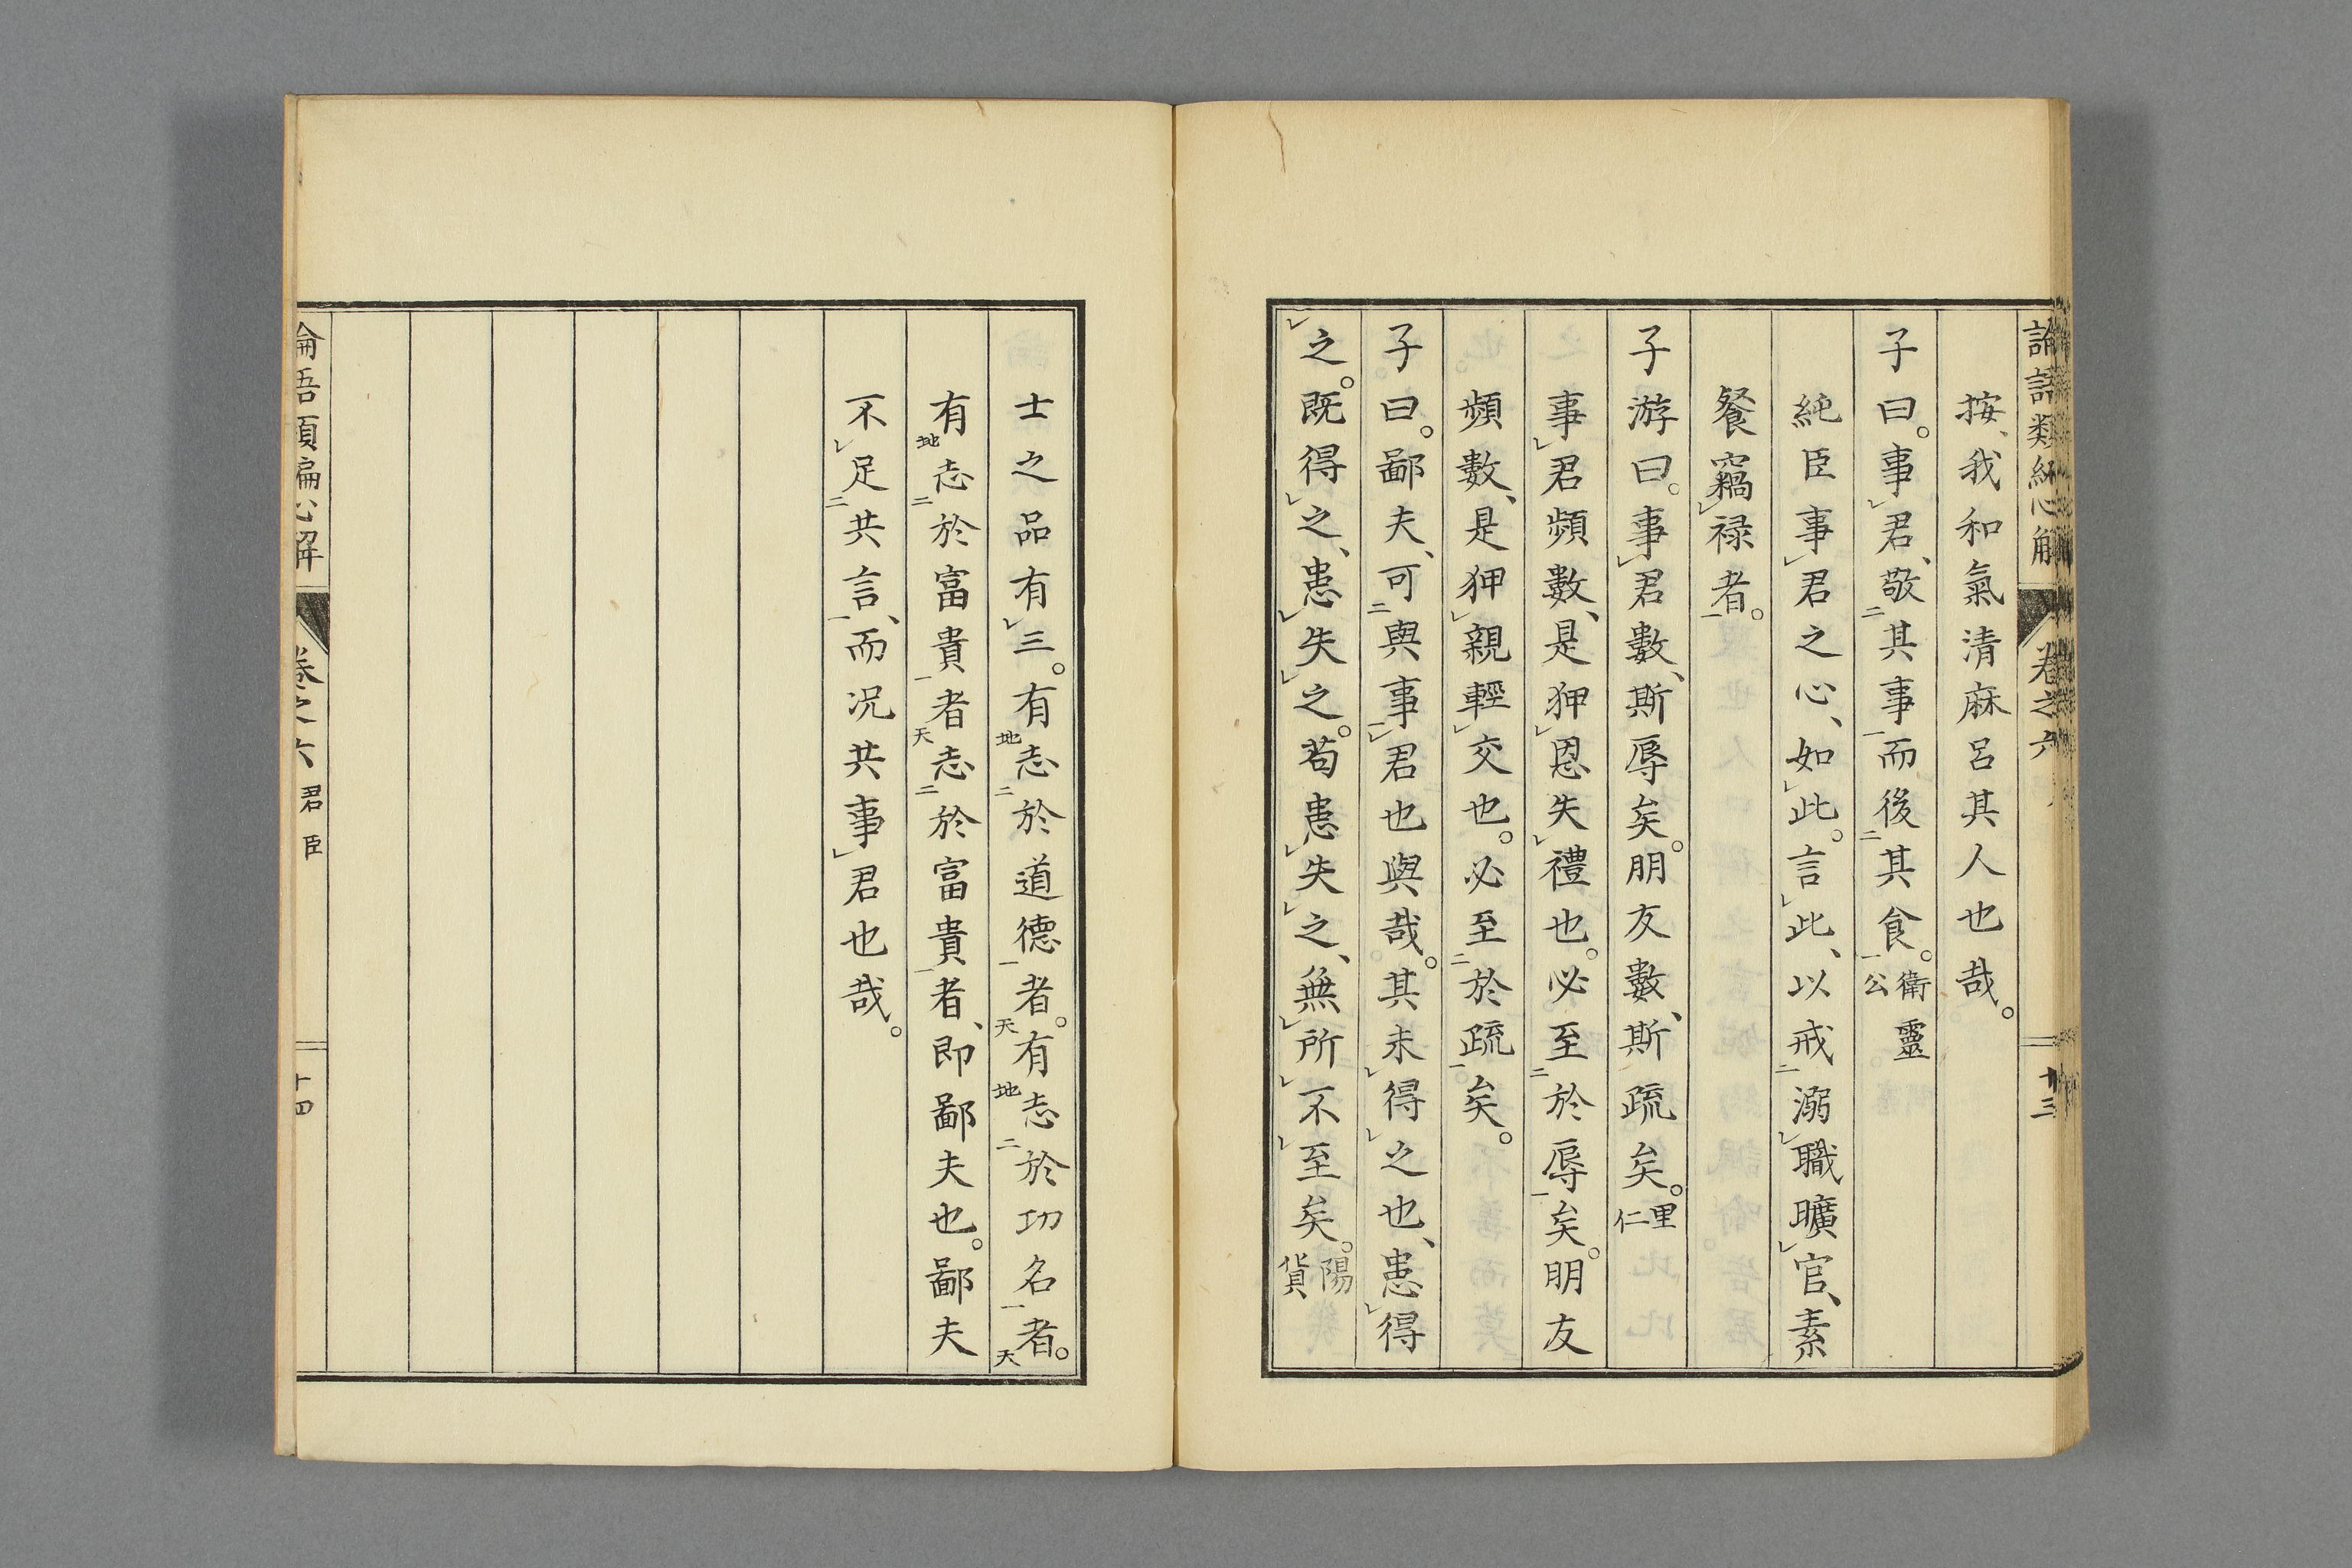 論語類編心解 卷之六 十三
按、我和氣清麻呂其人也哉。
子曰。事㆑君、敬㆓其事㆒而後㆓其食㆒。衛靈公
純臣事㆑君之心、如㆑此。言㆑此、以戒㆘溺㆑職曠㆑官、素
餐竊㆑祿者㆖。
子游曰。事㆑君數、斯辱矣。朋友數、斯疏矣。里仁
事㆑君頻數、是狎㆑恩失㆑禮也。必至㆓於辱㆒矣。朋友
頻數、是狎㆑親輕㆑交也。必至㆓於疏㆒矣。
子曰。鄙夫、可㆓與事㆒㆑君也與哉。其未㆑得㆑之也、患㆑得
㆑之。既得㆑之、患㆑失㆑之。苟患㆑失㆑之、無㆑所㆑不㆑至矣。陽貨
士之品有㆑三。有㆞志㆓於道德㆒者㆝。有㆞志㆓於功名㆒者㆝。
有㆞志㆓於富貴㆒者㆝志㆓於富貴㆒者、即鄙夫也。鄙夫
不㆑足㆓共言㆒、而況共事㆑君也哉。
論語類編心解 卷之六 君臣 十四